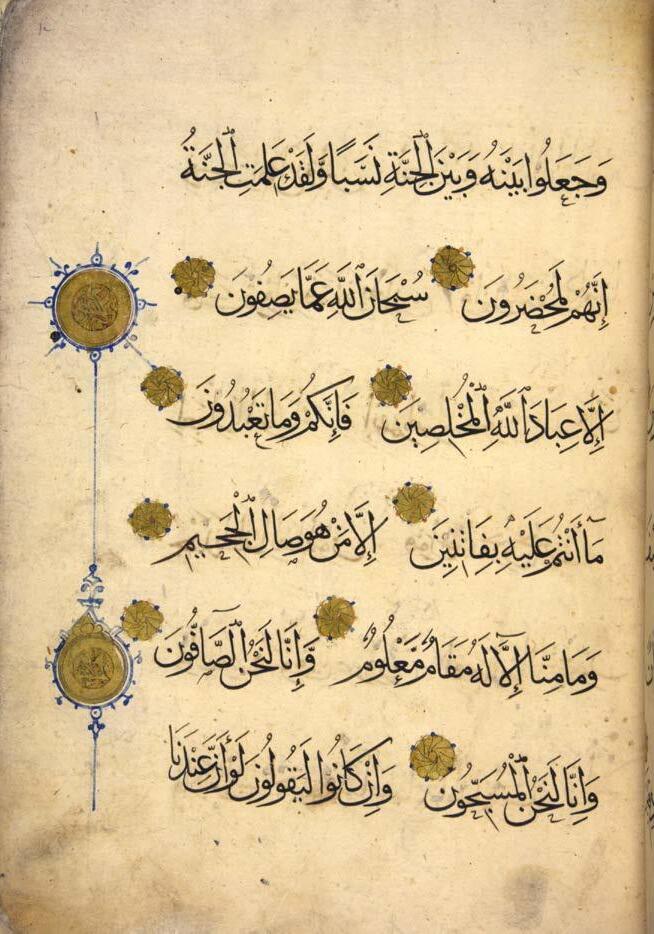 وَجَعَلُوا بَيْنَهُ وَبَيْنَ الْجِنَّةِ نَسَبًا وَلَقَدْ عَلِمَتِ الْجِنَّةُ
إِنَّهُمْ لَمُحْضَرُونَ سُبْحَانَ اللَّهِ عَمَّا يَصِفُونَ
إِلَّا عِبَادَ اللَّهِ الْمُخْلَصِينَ فَإِنَّكُمْ وَمَا تَعْبُدُونَ
مَا أَنْتُمْ عَلَيْهِ بِفَاتِنِينَ إِلَّا مَنْ هُوَ صَالِ الْجَحِيمِ
وَمَا مِنَّا إِلَّا لَهُ مَقَامٌ مَعْلُومٌ وَإِنَّا لَنَحْنُ الصَّافُّونَ
وَإِنَّا لَنَحْنُ الْمُسَبِّحُونَ وَإِنْ كَانُوا لَيَقُولُونَ لَوْ أَنَّ عِنْدَنَا